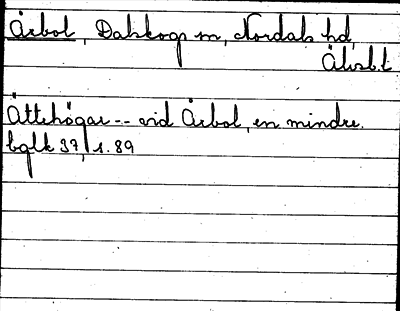 Årbol, Dalskogs sn, Nordals hd,
Älvsb.l.
Ättehögar -- vid Årbol, en mindre.
bglk 37, s. 89